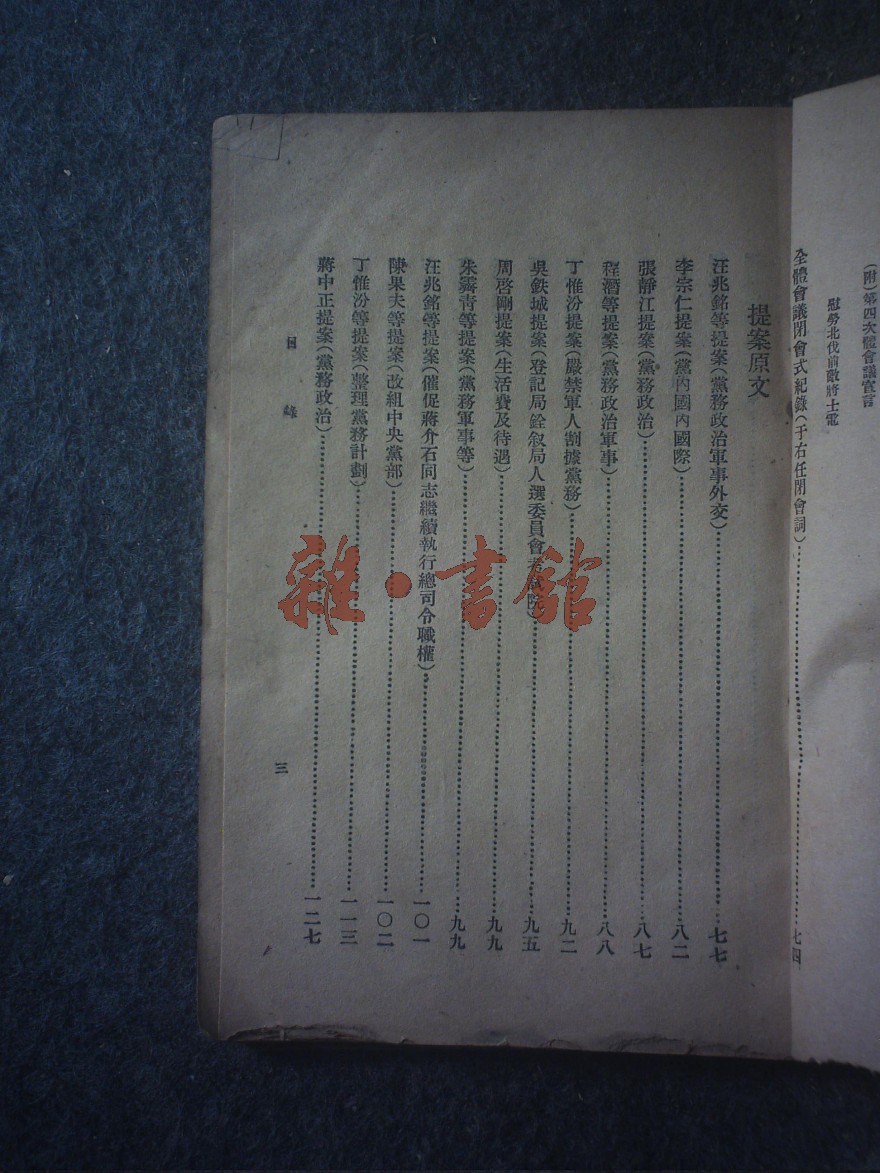 (附)第四次體會議宣言
慰勞北伐前敵將士電
全體會議閉會式紀錄(于右任閉會詞)……七四
提案原文
汪兆銘等提案(黨務政治軍事外交)……七七
李宗仁提案(黨內國內國際)……八二
張靜江提案(黨務政治)……八七
程潛等提案(黨務政治軍事)……八八
丁惟汾提案(嚴禁軍人割據黨務)……九二
吳鉄城提案(登記局銓叙局人選委員會考試院)……九五
周啓剛提案(生活費及待遇)……九九
朱霽青等提案(黨務軍事等)……九九
汪兆銘等提案(催促蔣介石同志繼續執行總司令職權)……一〇一
陳果夫等提案(改組中央黨部)……一〇二
丁惟汾等提案(整理黨務計劃)……一一三
蔣中正提案(黨務政治)……一二七
目錄
三
雜·書館